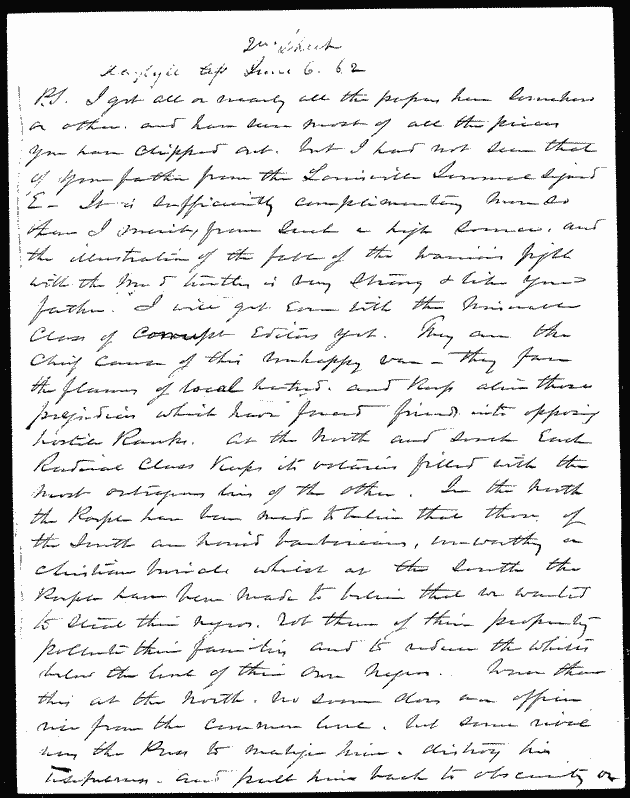 2nd Sheet
June 6. 62
P.S. I get all or nearly all the papers here somehow
or other. and have seen most of all the pieces
you have clipped out. but I had not seen that
of your father from the Louisville Journal signed
E— It is sufficiently complimentary more so
than I merit, from such a high source. and
the illustration of the fable of the Warriors fight
with the turtles is very strong & like your
father. I will get even with the miserable
Class of corrupt Editors yet. They are the
Chief cause of this unhappy war — they fan
the flames of local hatred. and keep alive those
prejudices which have forced friends into opposing
hostile Ranks. At the North and South Each
Radical Class keeps its votaries filled with the
most outrageous lies of the other. In the North
the People have been made to believe that those of
the South are horrid barbarians, unworthy a
Christian burial whilst at the South the
People have been made to believe that we wanted
to steal their negros. rob them of their property
pollute their families and to reduce the whites
below the level of their own Negros. Worse than
this at the North. no sooner does an officer
rise from the common level. but some rival
uses the Press to malign him. destroy his
usefulness. and pull him back to obscurity or